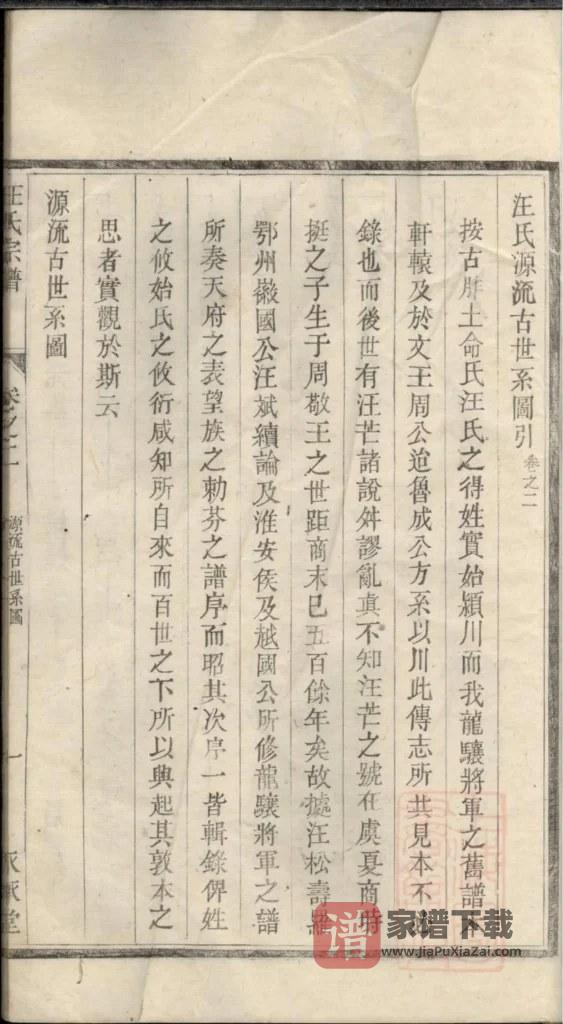 汪氏源流古世系圖引 卷之二
按古胙土命氏汪氏之得姓實始潁川而我龍驤將軍之舊譜本
軒轅及於文王周公迨魯成公方系以川此傳志所共見本不
錄也而後世有汪芒諸說舛謬亂真不知汪芒之號在虞夏商時
挺之子生于周敬王之世距商末已五百餘年矣故據汪松壽
鄂州徽國公汪斌續論及淮安侯及越國公所修龍驤將軍之譜
所奏天府之表望族之勅芬之譜序而昭其次序一皆輯錄俾姓
之攸始氏之攸衍咸知所自來而百世之下所以興起其敦本之
思者實觀於斯云
源流古世系圖
汪氏宗譜
卷之二
源流古世系圖
一
譜
家谱下载
www.JiaPuXiaZai.com